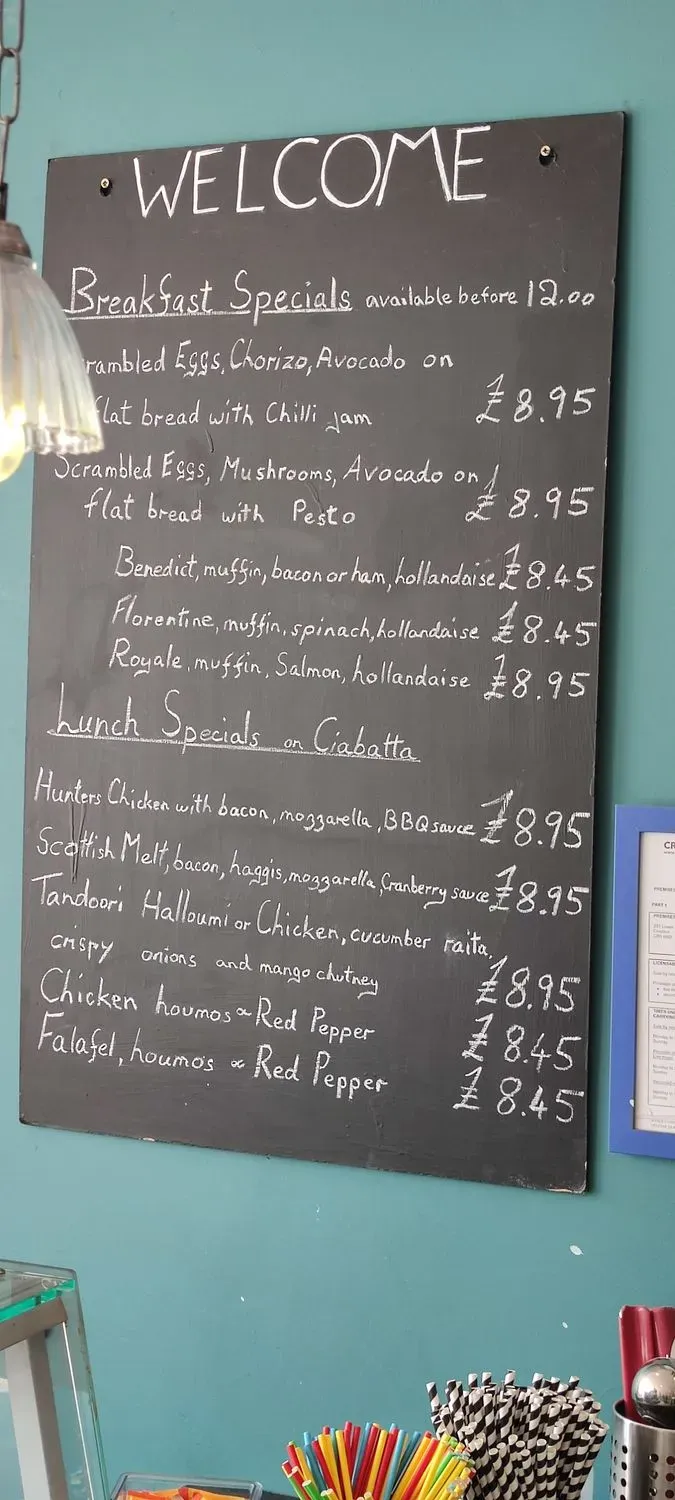 WELCOME
Breakfast Specials available before 12.00
rambled Eggs, Chorizo, Avocado on
flat bread with Chilli Jam £8.95
Scrambled Eggs, Mushrooms, Avocado on
flat bread with Pesto £8.95
Benedict, muffin, bacon or ham, hollandaise £8.45
Florentine, muffin, spinach, hollandaise £8.45
Royale, muffin, Salmon, hollandaise £8.95
Lunch Specials on Ciabatta
Hunters Chicken with bacon, mozzarella, BBQ sauce £8.95
Scottish Melt, bacon, haggis, mozzarella, Cranberry sauce £8.95
Tandoori Halloumi or Chicken, cucumber raita,
crispy onions and mango chutney £8.95
Chicken houmos & Red Pepper £8.45
Falafel, houmos & Red Pepper £8.45